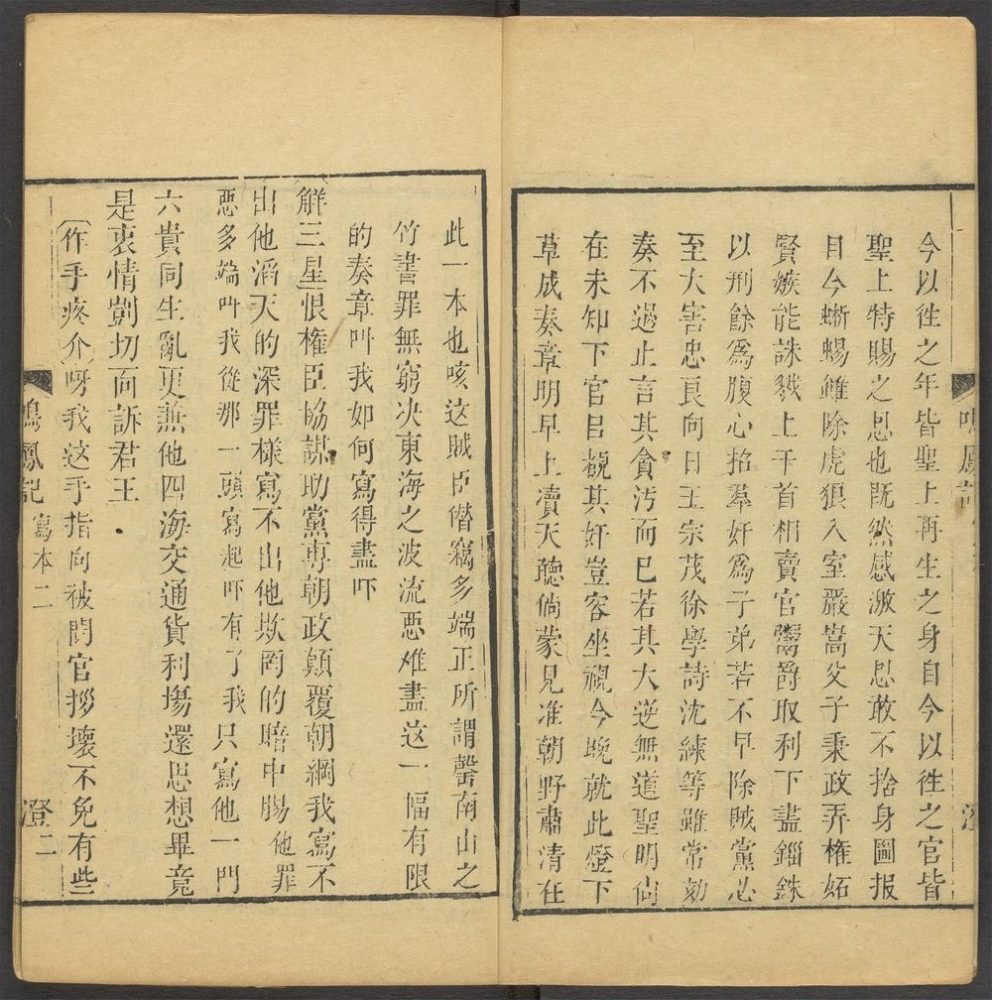 今以徃之年皆聖上再生之身自今以徃之官皆
聖上特賜之恩也既然感激天恩敢不捨身圖报
目今蜥蜴雖除虎狼入室嚴嵩父子秉政弄権妬
賢嫉能誅戮上千首相賣官鬻爵取利下盡錙銖
以刑餘爲腹心招羣奸爲子弟若不早除賊黨必
至大害忠良向日王宗茂徐學詩沈練等雖常劾
奏不過止言其貪汚而已若其大逆無道聖明尙
在未知下官目覩其奸豈容坐視今晚就此燈下
草成奏章明早上瀆天聽倘蒙見准朝野肅清在
此一本也咳这賊臣僣竊多端正所謂罄南山之
竹書罪無窮决東海之波流悪难盡这一幅有限
的奏章叫我如何寫得盡吓
觧三星恨權臣協謀助黨専朝政顛覆朝綱我寫不
出他滔天的深罪様寫不出他欺罔的暗中腸他罪
悪多端叫我從那一頭寫起吓有了我只寫他一門
六貴同生亂更兼他四海交通貨利塲還思想畢竟
是衷情剴切面訴君王
作手疼介呀我这手指向被問官拶壊不免有些
鳴鳳記 寫本二 澄二